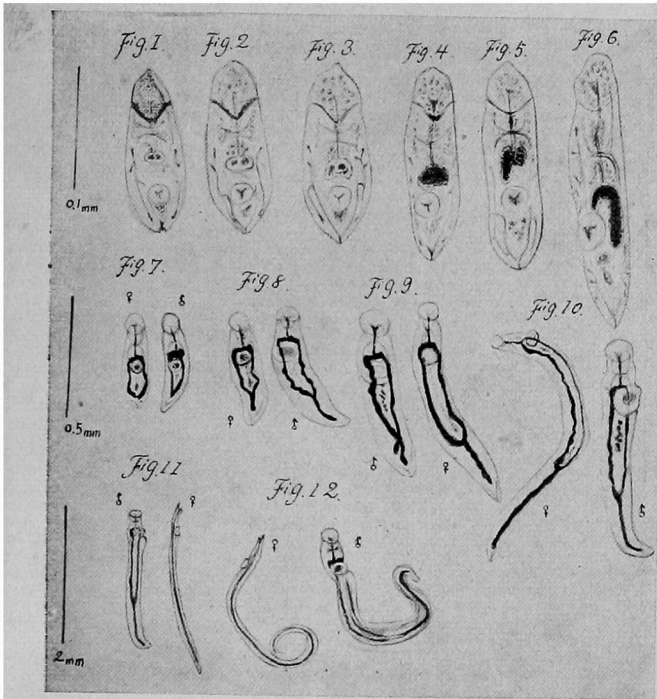 Fig.1. Fig.2 Fig.3. Fig.4 Fig.5. Fig.6.
0.1mm
Fig.7. Fig.8. Fig.9. Fig.10.
♀ ♂
♀ ♂
♂ ♀
♀ ♂
0.5mm
Fig.11 Fig.12.
♂ ♀
♀ ♂
2mm